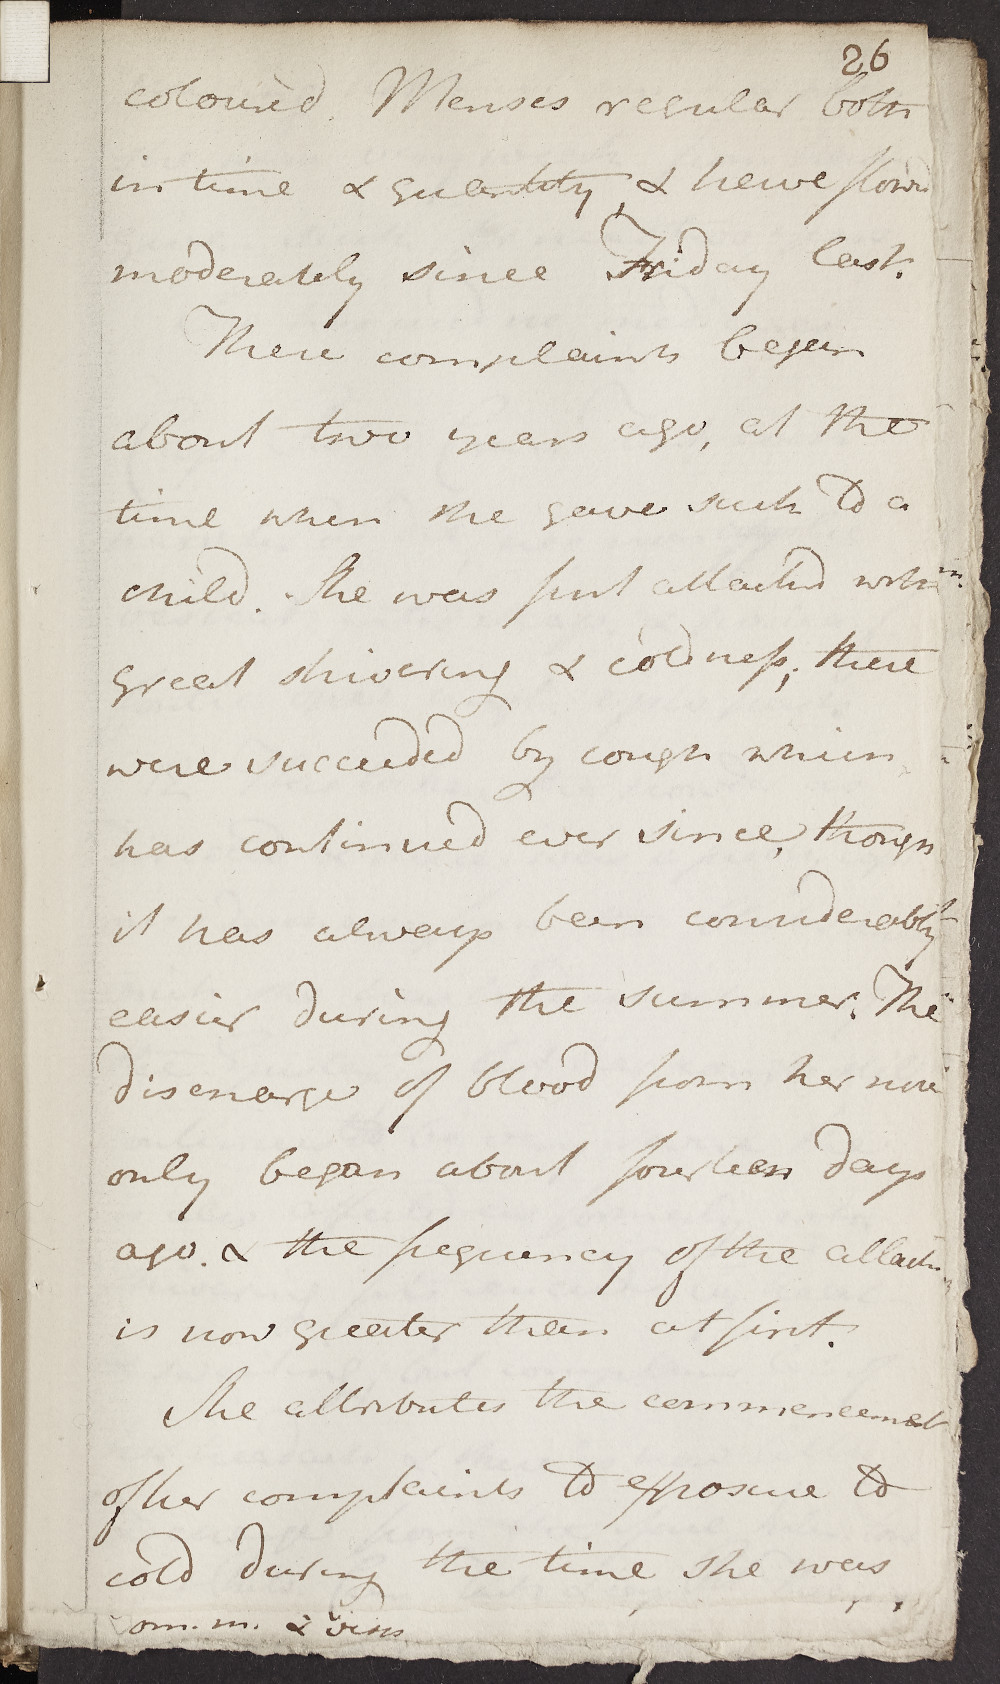 26
coloured. Menses regular both
in time & quantity, & have flowed
moderately since Friday last.
These complaints began
about two years ago, at the
time when she gave suck to a
child. She was first attacked with
great shivering & coldness, these
were succeeded by cough which
has continued ever since, though
it has always been considerably
easier during the summer. The
discharge of blood from her nose
only began about fourteen days
ago. & the frequency of the attacks
is now greater than at first.
She attributes the commencement
of her complaints to exposure to
cold during the time she was
om. m. &